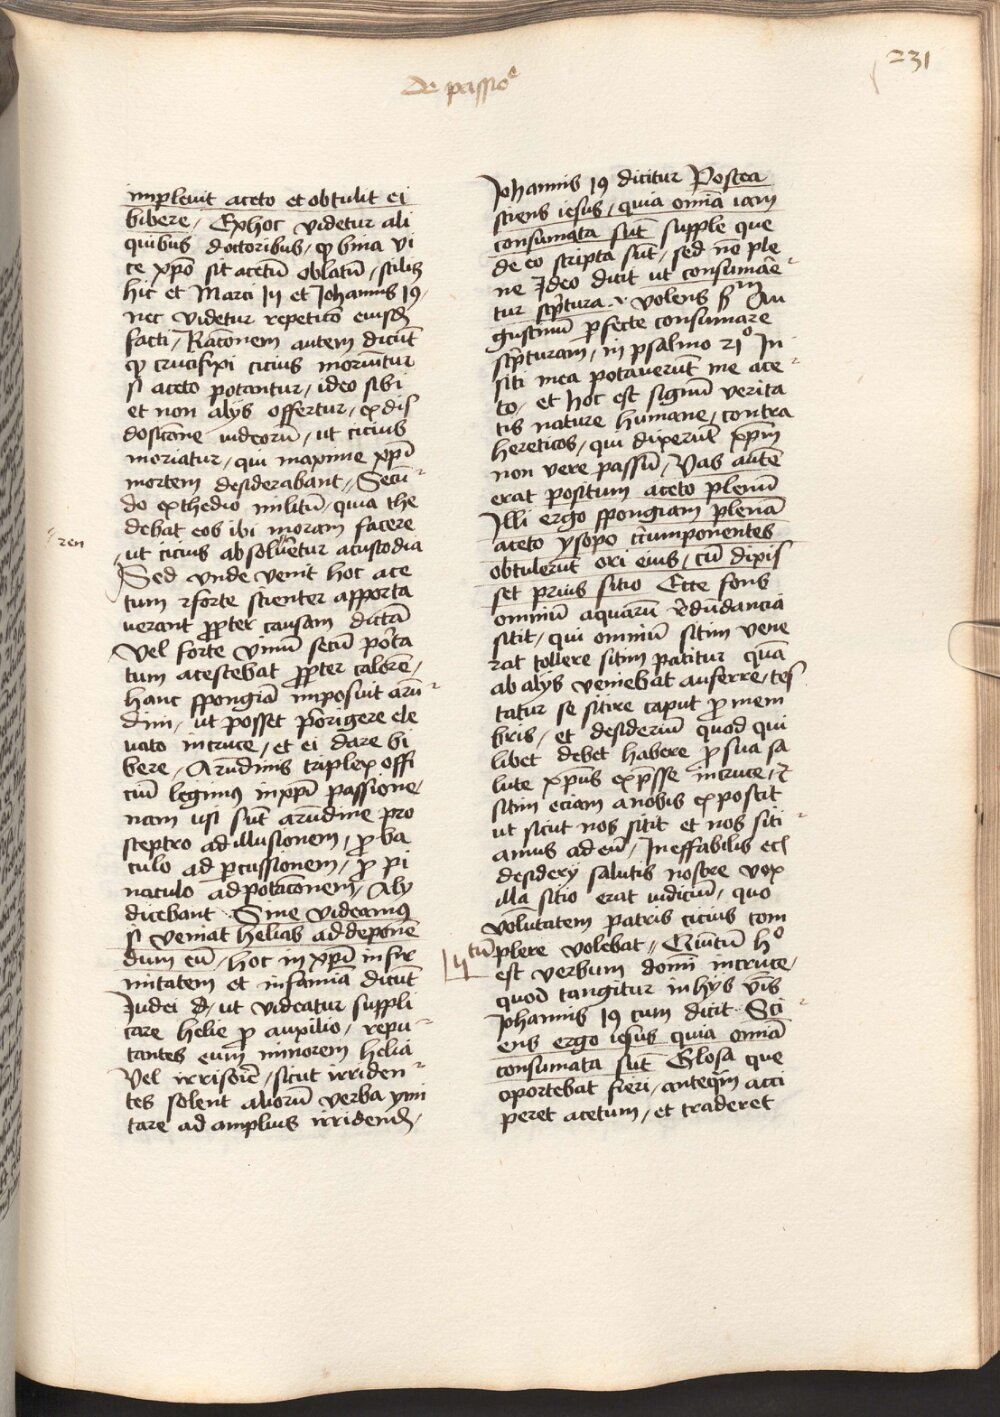 De passioe
231
implevit aceto et obtulit ei
bibere / Ex hoc videtur ali
quibus doctoribus / qͻ bina vi
ce xpō sit acetū oblatū / scilicꝫ
hic et Marci 15 et Johannis 19 /
nec videtur repeticō eiusdē
facti / Racōnem autem dicūt
qͻ crucifixi cicius moriūtur
si aceto potantur / ideo sibi
et non alijs offertur / ex dis
doscōne iudeorū / ut cicius
moriatur / qui maxime xpī
mortem desiderabant // Secū
do ex thedio militū / quia the
debat eos ibi moram facere
ren
ut cicius absolvētur a custodia
Sed unde venit hoc ace
tum / forte scienter apporta
verant ꝓpter causam dictā
Vel forte vinū secū porta
tum acescebat ꝓpter calorē /
hanc spongiā imposuit arū
dini / ut posset porrigere ele
vato in cruce / et ei dare bi
bere / Arūdinis triplex offi
ciū legimꝰ in xpī passione /
nam usi sūt arūdine pro
sceptro ad illusionem / ꝓ ba
culo ad ꝑcussionem / ꝓ pi
naculo ad potacōnem / Alij
dicebant · Sine videamꝰ
si veniat helias ad deponē
dum eū / hoc in xpī infir
mitatem et infamiā dicūt
Judei / ut videatur suppli
care helie ꝓ auxilio / repu
tantes eum minorem helia
Vel irrisorie / sicut irriden
tes solent aliorū verba ymi
tare ad amplius irridendū /
Johannis 19 dicitur Postea
sciens iesus / quia omīa iam
consumata sūt supple que
de eo scripta sūt / sed nō ple
ne Ideo dicit ut consumāe
tur scpͥtura · volens scdm Au
gustinū ꝑfecte consumare
scpͥturam / in psalmo 21º In
siti mea potaverūt me ace
to / et hoc est signū verita
tis nature humane / contra
hereticos / qui dixerūt xpm
non vere passū / Vas autē
erat positum aceto plenū
Illi ergo spongiam plenā
aceto ysopo circumponentes
obtulerūt ori eius / cū dixis
set prius sitio Ecce fons
omniū aquarū redūdancia
sitit / qui omniū sitim vene
rat tollere sitim patitur quā
ab alijs veniebat auferre / tes
tatur se sitire caput ꝓ mem
bris / et desideriū quod qui
libet debet habere ꝓ sua sa
lute xpūs exp̄sse in cruce /
sitim eciam a nobis exposcit
ut sicut nos sitit et nos siti
amus ad eū / Ineffabilis eciā
desiderij salutis nostre vox
illa sitio erat iudiciū / quo
volūtatem patris cicius com
plere volebat // Quintū hº
V tū
est verbum domī in cruce /
quod tangitur in hijs v̄bis
Johannis 19 cum dicit · Sci
ens ergo iesus quia omīa
consumata sūt Glosa que
oportebat fieri / anteqͣm acci
peret acetum / et traderet